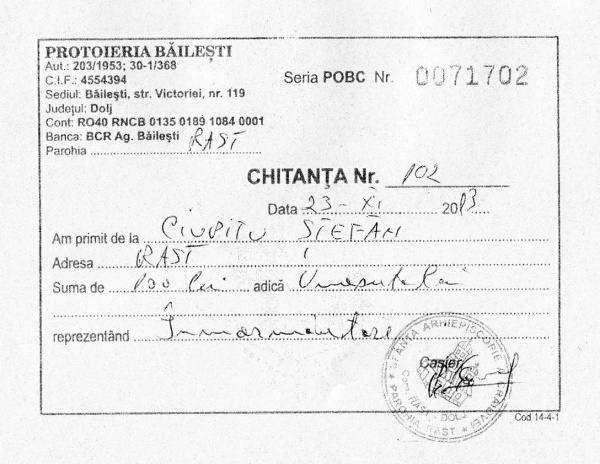 PROTOIERIA BĂILEȘTI
Aut.: 203/1953; 30-1/368
C.I.F.: 4554394
Sediul: Băileşti, str. Victoriei, nr. 119
Judeţul: Dolj
Cont: RO40 RNCB 0135 0189 1084 0001
Banca: BCR Ag. Băileşti
Parohia RAST
Seria POBC Nr. 0071702
CHITANŢA Nr. 102
Data 23-XI 2013
Am primit de la CIUPITU STEFAN
Adresa RAST
Suma de 100 lei adică Unasuta lei
reprezentând Înmormântare
SFÂNTA ARHIEPISCOPIE A CRAIOVEI
PAROHIA RAST
Com. RAST - DOLJ
Casier
Cod 14-4-1